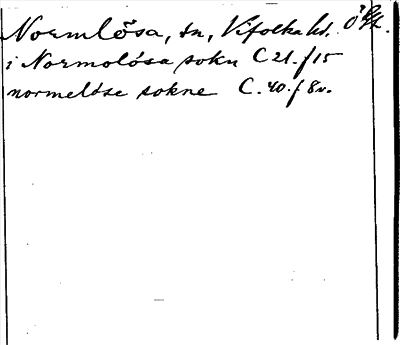 Normlösa, sn, Vifolka hd. Ög.
i Normolösa sokn C 21. f 15
normelöse sokne C. 40. f 8v.